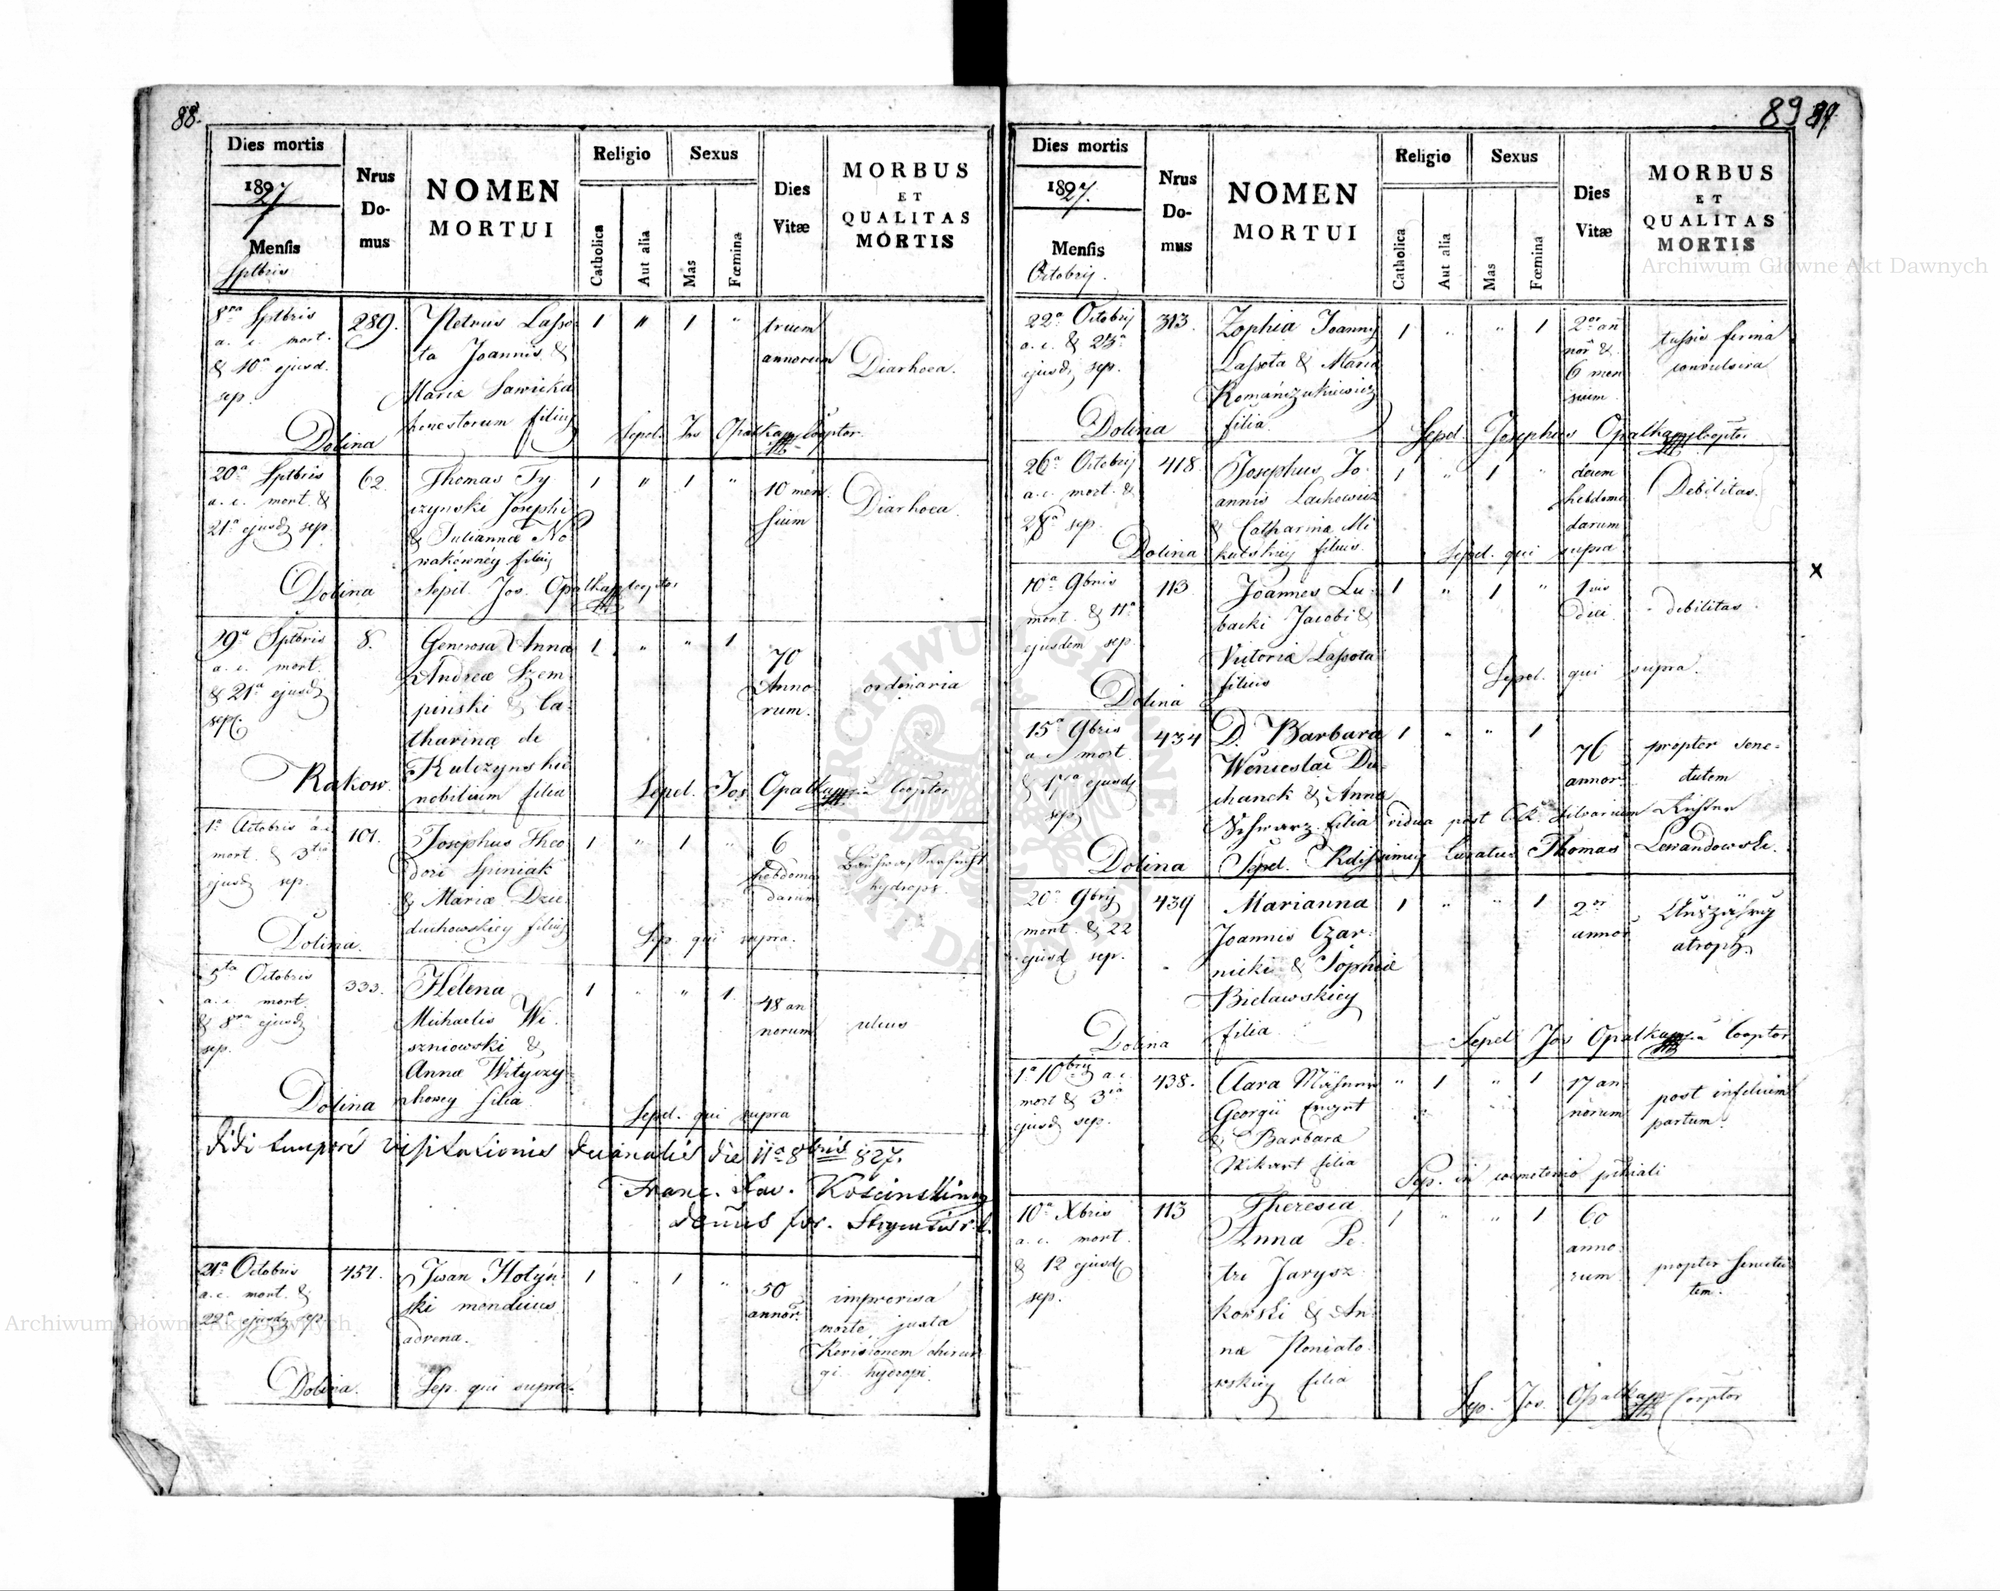 88.
Dies mortis
1827
Mensis
Sptbris
Nrus
Do-
mus
NOMEN
MORTUI
Religio
Catholica
Aut alia
Sexus
Mas
Fœmina
Dies
Vitæ
MORBUS
ET
QUALITAS
MORTIS
8va Sptbris
a. c. mort.
& 10a ejusd.
sep.
Dolina
289.
Petrus Lasso
ta Joannis &
Maria Sawicka
honestorum filius
1 " 1 "
trium
annorum
Diarhoea.
Sepel. Jos Opalka Cooptor.
20a Sptbris
a. c. mort &
21a ejusd sep.
Dolina
62
Thomas Ty
czynski Josephi
& Julianna No
wakowney filius
1 " 1 "
10 men
sium
Diarhoea.
Sepel Jos. Opalka Cooptor
29a Sptbris
a. c. mort.
& 21a ejusd
sep.
Rakow.
8.
Generosa Anna
Andreæ Szem
pinski & Ca
tharinæ de
Kulczynskie
nobilium filia
1 " " 1
70
Anno
rum.
ordinaria
Sepel. Jos Opalka Cooptor
1a Octobris a.c.
mort. & 3tia
ejusd sep.
Dolina.
101.
Josephus Theo
dori Spiniak
& Mariæ Dzie
duchowskiey filius
1 " 1 "
6
hebdoma
darum
hydrops.
Sep. qui supra.
5ta Octobris
a. c. mort.
& 8va ejusd
sep.
Dolina
333.
Helena
Michaelis Wi
szniowski &
Annæ Wityczy
howey filia.
1 " " 1
48 an
norum
ulcus
Sepel. qui supra
Vidi tempore visitationis decanalis die 11a 8bris 827.
Franc. Xav. Koscinski
21a Octobris
a. c. mort. &
22a ejusd sep.
Dolina.
451.
Iwan Hotyn
ski mendicus
advena.
1 " 1 "
50
annor.
improvisa
morte, juxta
Revisionem chirur
gi hydropi.
Sep. qui supra.
89 89.
Dies mortis
1827.
Mensis
Octobrij.
Nrus
Do-
mus
NOMEN
MORTUI
Religio
Catholica
Aut alia
Sexus
Mas
Fœmina
Dies
Vitæ
MORBUS
ET
QUALITAS
MORTIS
22a Octobrij
a. c. & 23a
ejusd sep.
Dolina
313.
Zophia Joannij
Lassota & Maria
Romanczukiewicz
filia.
1 " " 1
2or an
nor &
6 men
sium
tussis ferina
convulsiva
Sepel Josephus Opalka Cooptor.
26a Octobrij
a. c. mort. &
28a sep.
Dolina
418.
Josephus Jo
annis Lachowicz
& Catharina Mi
kulskiey filius.
1 " 1 "
decem
hebdoma
darum
Debilitas.
Sepel. qui supra
10a 9bris
mort. & 11a
ejusdem sep
Dolina
113.
Joannes Lu
backi Jacobi &
Victoria Lassota
filius
1 " 1 "
1ius
diei
debilitas
Sepel. qui supra.
x
15a 9bris
a. c. mort
& 17a ejusd
sep
Dolina
434
D. Barbara
Wenceslai Du
chanek & Anna
Schwarz filia vidua post C.R. silvarum
1 " " 1
76
annor.
propter sene-
ctutem
Sepel. Rdissimus Curatus Thomas Lewandowski.
20a 9brij
mort. & 22
ejusd sep.
Dolina
439
Marianna
Joannis Czar
niecki & Sophiæ
Bielawskiey
filia
1 " " 1
2or
annor
Auszährung
atroph.
Sepel Jos Opalka Cooptor
1a 10brij a.c.
mort & 3tia
ejusd sep.
438.
Clara
Georgii
& Barbara
filia
" 1 " 1
17 an
norum
post infelicem
partum.
Sep. in coemeterio filiali
10a Xbris
a. c. mort.
& 12 ejusd
sep.
113
Theresia
Anna Pe
tri Jarysz
kowski & An
na Poniato
wskiey filia
1 " " 1
60
anno
rum
propter senectu
tem.
Sep. Jos. Opalka Cooptor
ARCHIWUM GŁÓWNE AKT DAWNYCH
Archiwum Główne Akt Dawnych
Archiwum Główne Akt Dawnych